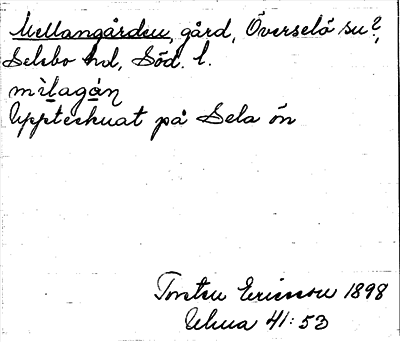 Mellangården, gård, Överselö sn?,
Selebo hd, Söd. l.
mìlagán
Upptecknat på Sela ön
Torsten Ericsson 1898
Ulma 41:53